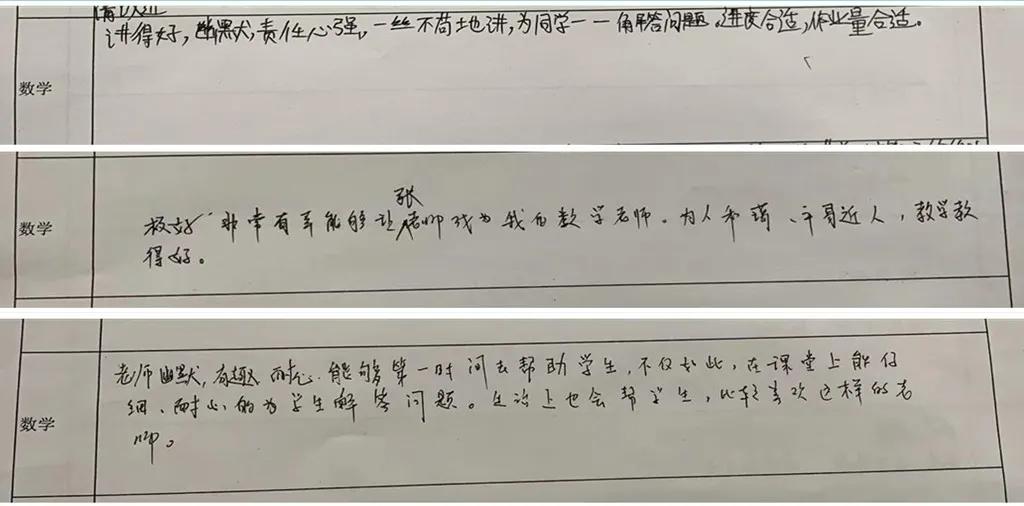 讲得好,幽默,责任心强,一丝不苟地讲,为同学一一解答问题。进度合适,作业量合适。
数学
张
极好 非常有幸能够让老师成为我的数学老师。为人和蔼、平易近人,教学教
数学
得好。
老师幽默,有趣 耐心.能够第一时间去帮助学生,不仅如此,在课堂上能仔
细、耐心的为学生解答问题。生活上也会帮学生,比较喜欢这样的老
数学
师。